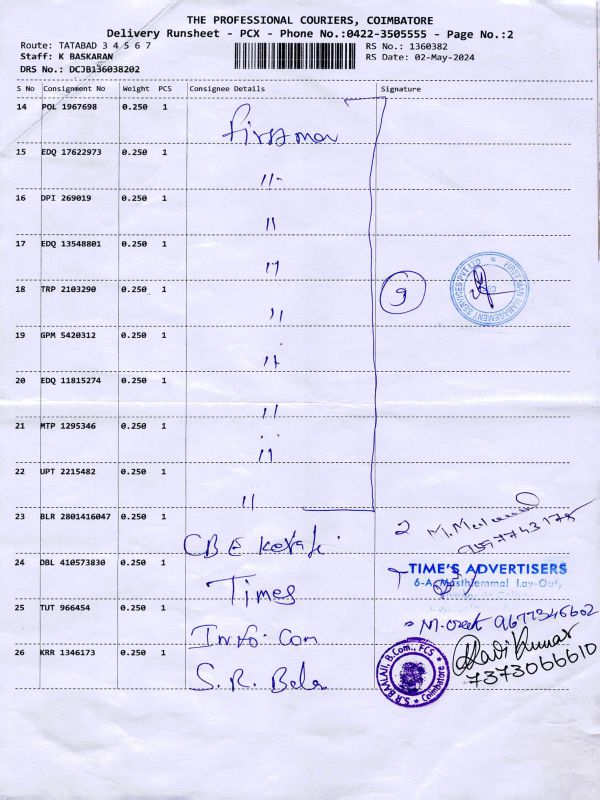 THE PROFESSIONAL COURIERS, COIMBATORE
Delivery Runsheet - PCX - Phone No.:0422-3505555 - Page No.:2
Route: TATABAD 3 4 5 6 7
RS No.: 1360382
Staff: K BASKARAN
RS Date: 02-May-2024
DRS No.: DCJB136038202
S No Consignment No Weight PCS Consignee Details Signature
14 POL 1967698 0.250 1 Firstman
15 EDQ 17622973 0.250 1 〃
16 DPI 269019 0.250 1 〃
17 EDQ 13548801 0.250 1 〃
18 TRP 2103290 0.250 1 〃 9
FIRSTMAN MANAGEMENT SERVICES PVT LTD
19 GPM 5420312 0.250 1 〃
20 EDQ 11815274 0.250 1 〃
21 MTP 1295346 0.250 1 〃
22 UPT 2215482 0.250 1 〃
23 BLR 2801416047 0.250 1 CBE 2
24 DBL 410573830 0.250 1 Times
TIME'S ADVERTISERS
6-A,
25 TUT 966454 0.250 1 Info. Com
9677346602
26 KRR 1346173 0.250 1 S. R. Bala
S.R BAALAJI, B.Com., FCS
Coimbatore
Ravi Kumar
7373066610